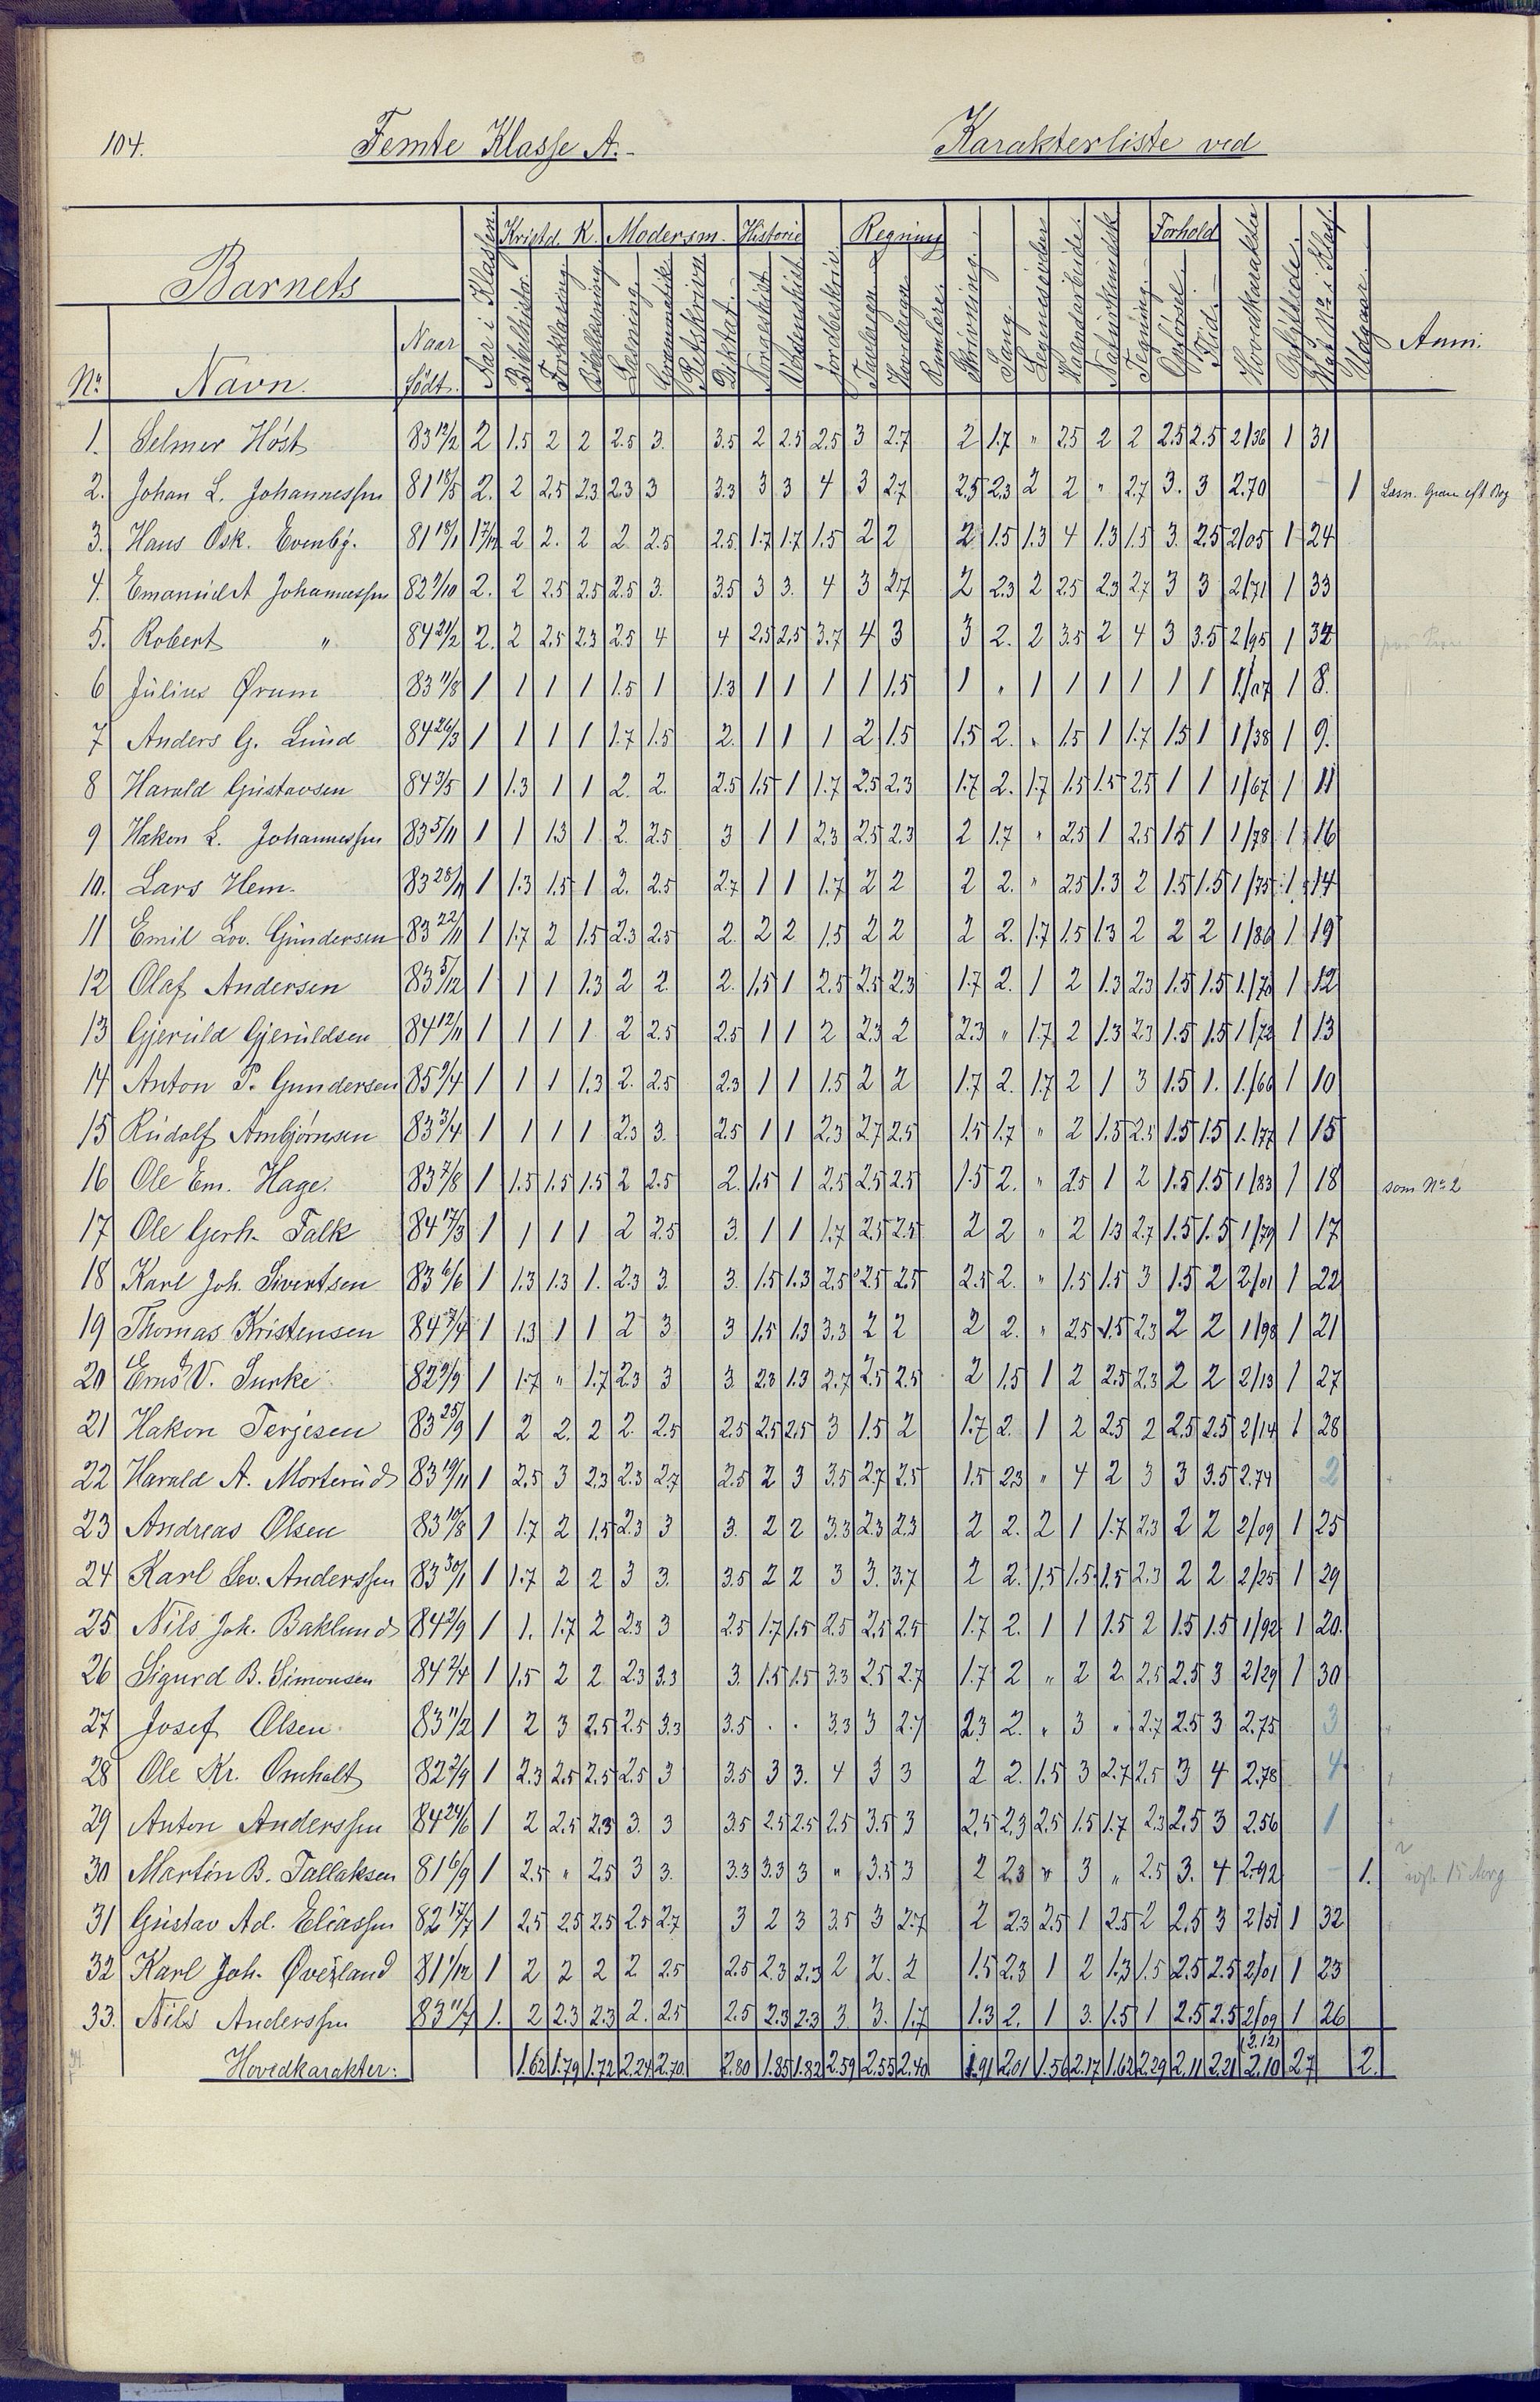 104. Femte Klasse A. Karakterliste ved
Barnets Aar i Klassen. Kristd. K. Modersm. Historie Regning Forhold
No. Navn. Naar født. Bibelhistor. Forklaring Læsning Grammatik Retskrivn Diktat. Norgeshist Verdenshist Jordbeskriv. Tavleregn Hovedregn Skrivning. Sang. Legemsøvelser Haandarbeide. Naturkundsk Tegning. Opførsel. Flid. Hovedkarakter Opflyttede. Udgaar. Anm.
1. Selmer Høst 83 12/2 2 1.5 2 2 2.5 3. 3.5 2 2.5 2.5 3 2.7 2 1.7 " 2.5 2 2 2.5 2.5 2/36 1 31
2. Johan L. Johannessen 81 18/5 2. 2 2.5 2.3 2.3 3 3.3 3 3 4 3 2.7 2.5 2.3 2 2 " 2.7 3. 3 2.70 - 1
3. Hans Osk. Evenbg. 81 18/1 2 2. 2 2 2.5 2.5 1.7 1.7 1.5 2 2 2 1.5 1.3 4 1.3 1.5 3. 2.5 2/05 1 24
4. Emanuel A Johannessen 82 9/10 2. 2 2.5 2.5 2.5 3. 3.5 3 3. 4 3 2.7 2 2.3 2 2.5 2.3 2.7 3 3 2/71 1 33
5. Robert " 84 21/2 2. 2 2.5 2.3 2.5 4 4 2.5 2.5 3.7 4 3 3 2. 2 3.5 2 4 3 3.5 2/95 1 34
6 Julius Ørum 83 11/8 1 1 1 1 1.5 1 1.3 1 1 1 1 1.5 1 " 1 1 1 1 1 1 1/07 1 8.
7 Anders G. Lund 84 26/3 1 1 1 1 1.7 1.5 2. 1 1 1 2 1.5 1.5 2. " 1.5 1 1.7 1.5 1 1/38 1 9.
8 Harald Gustavsen 84 3/5 1 1.3 1 1 2. 2. 2.5 1.5 1 1.7 2.5 2.3 1.7 2. 1.7 1.5 1.5 2.5 1 1 1/67 1 11
9 Hakon L. Johannessen 83 5/11 1 1 1.3 1 2. 2.5 3 1 1 2.3 2.5 2.3 2 1.7 " 2.5 1 2.5 1.5 1 1/78 1 16
10. Lars Hem. 83 28/11 1 1.3 1.5 1 2. 2.5 2.7 1 1 1.7 2 2 2 2. " 2.5 1.3 2 1.5 1.5 1/75 1 14
11 Emil Lov. Gundersen 83 22/11 1 1.7 2 1.5 2.3 2.5 2. 2 2 1.5 2 2 2 2. 1.7 1.5 1.3 2 2 2 1/86 1 19
12 Olaf Andersen 83 5/12 1 1 1 1.3 2 2. 2. 1.5 1 2.5 2.5 2.3 1.7 2. 1 2 1.3 2.3 1.5 1.5 1/70 1 12
13 Gjeruld Gjeruldsen 84 12/11 1 1 1 1. 2 2.5 2.5 1 1 2 2.3 2 2.3 " 1.7 2 1.3 2.3 1.5 1.5 1/72 1 13
14 Anton P. Gundersen 85 9/4 1 1 1 1.3 2. 2.5 2.3 1 1 1.5 2 2 1.7 2. 1.7 2 1 3 1.5 1. 1/66 1 10
15 Rudolf Ambjørnsen 83 3/4 1 1 1 1 2.3 3. 2.5 1 1 2.3 2.7 2.5 1.5 1.7 " 2 1.5 2.5 1.5 1.5 1/77 1 15
16 Ole Em. Hage. 83 7/8 1 1.5 1.5 1.5 2 2.5 2. 1.5 1 2.5 2.5 2.5 1.5 2. " 2.5 1 2 1.5 1.5 1/83 1 18 som No 2
17 Ole Gerh. Falk 84 17/3 1 1 1 1 2 2.5 3. 1 1 1.7 2.5 2.5 2 2 " 2 1.3 2.7 1.5 1.5 1/79 1 17
18 Karl Joh. Sivertsen 83 6/6 1 1.3 1.3 1. 2.3 3. 3. 1.5 1.3 2.5 2.5 2.5 2.5 2. " 1.5 1.5 3 1.5 2 2/01 1 22
19 Thomas Kristensen 84 3/4 1 1.3 1 1 2 3 3 1.5 1.3 3.3 2 2 2 2. " 2.5 1.5 2.3 2 2 1/98 1 21
20 V. Surke 82 9/9 1 1.7 " 1.7 2.3 3 3 2.3 1.3 2.7 2.5 2.5 2 1.5 1 2 2.5 2.3 2 2 2/13 1 27
21 Hakon Terjesen 83 25/9 1 2 2. 2 2. 2.5 2.5 2.5 2.5 3 1.5 2 1.7 2. 1 2 2.5 2 2.5 2.5 2/14 1 28
22 Harald A. Morterud 83 19/11 1 2.5 3 2.3 2.3 2.7 2.5 2 3 3.5 2.7 2.5 1.5 2.3 " 4 2 3 3 3.5 2.74 2
23 Andreas Olsen 83 10/8 1 1.7 2 1.5 2.3 3 3. 2 2 3.3 2.3 2.3 2 2. 2 1 1.7 2.3 2 2 2/09 1 25
24 Karl Lev. Anderssen 83 30/1 1 1.7 2 2 3 3. 3.5 2 2 3 3. 3.7 2 2. 1.5 1.5 1.5 2.3 2 2 2/25 1 29
25 Nils Joh. Baklund 84 2/9 1 1. 1.7 2 2.3 3 2.5 1.7 1.5 2.5 2.5 2.5 1.7 2. 1 1 1.5 2 1.5 1.5 1/92 1 20.
26 Sigurd B. Simonsen 84 2/4 1 1.5 2 2 2.3 3.3 3. 1.5 1.5 3.3 2.5 2.7 1.7 2 " 2 2 2.5 2.5 3 2/29 1 30
27 Josef Olsen. 83 11/2 1 2 3 2.5 2.5 3.3 3.5 . . 3.3 3 2.7 2.3 2. " 3 " 2.7 2.5 3 2.75 3
28 Ole Kr. Omholt 82 3/9 1 2.3 2.5 2.5 2.5 3 3.5 3 3. 4 3 3 2 2. 1.5 3 2.7 2.5 3 4 2.78 4
29 Anton Anderssen 84 24/6 1 2 2.5 2.3 3. 3 3.5 2.5 2.5 2.5 3.5 3 2.5 2.3 2.5 1.5 1.7 2.3 2.5 3 2.56 1
30 Martin B. Tallaksen 81 6/9 1 2.5 " 2.5 3 3. 3.3 3.3 3 " 3.5 3 2 2.3 " 3 " 2.5 3. 4 2.92 - 1.
31 Gustav Ad. Eliassen 82 17/7 1 2.5 2.5 2.5 2.5 2.7 3 2 3 3.5 3 2.7 2 2.3 2.5 1 2.5 2 2.5 3 2/51 1 32
32 Karl Joh. Øverland 81 1/12 1 2 2 2 2 2.5 2.5 2.3 2.3 2 2. 2 1.5 2.3 1 2 1.3 1.5 2.5 2.5 2/01 1 23
33. Nils Anderssen 83 11/7 1. 2 2.3 2.3 2. 2.5 2.5 2.3 2.3 3 3. 1.7 1.3 2. 1 3. 1.5 1 2.5 2.5 2/09 1 26
(2.12)
Hovedkarakter: 1.62 1.79 1.72 2.24 2.70 2.80 1.85 1.82 2.59 2.55 2.40 1.91 2.01 1.56 2.17 1.62 2.29 2.11 2.21 2.10 27 2.